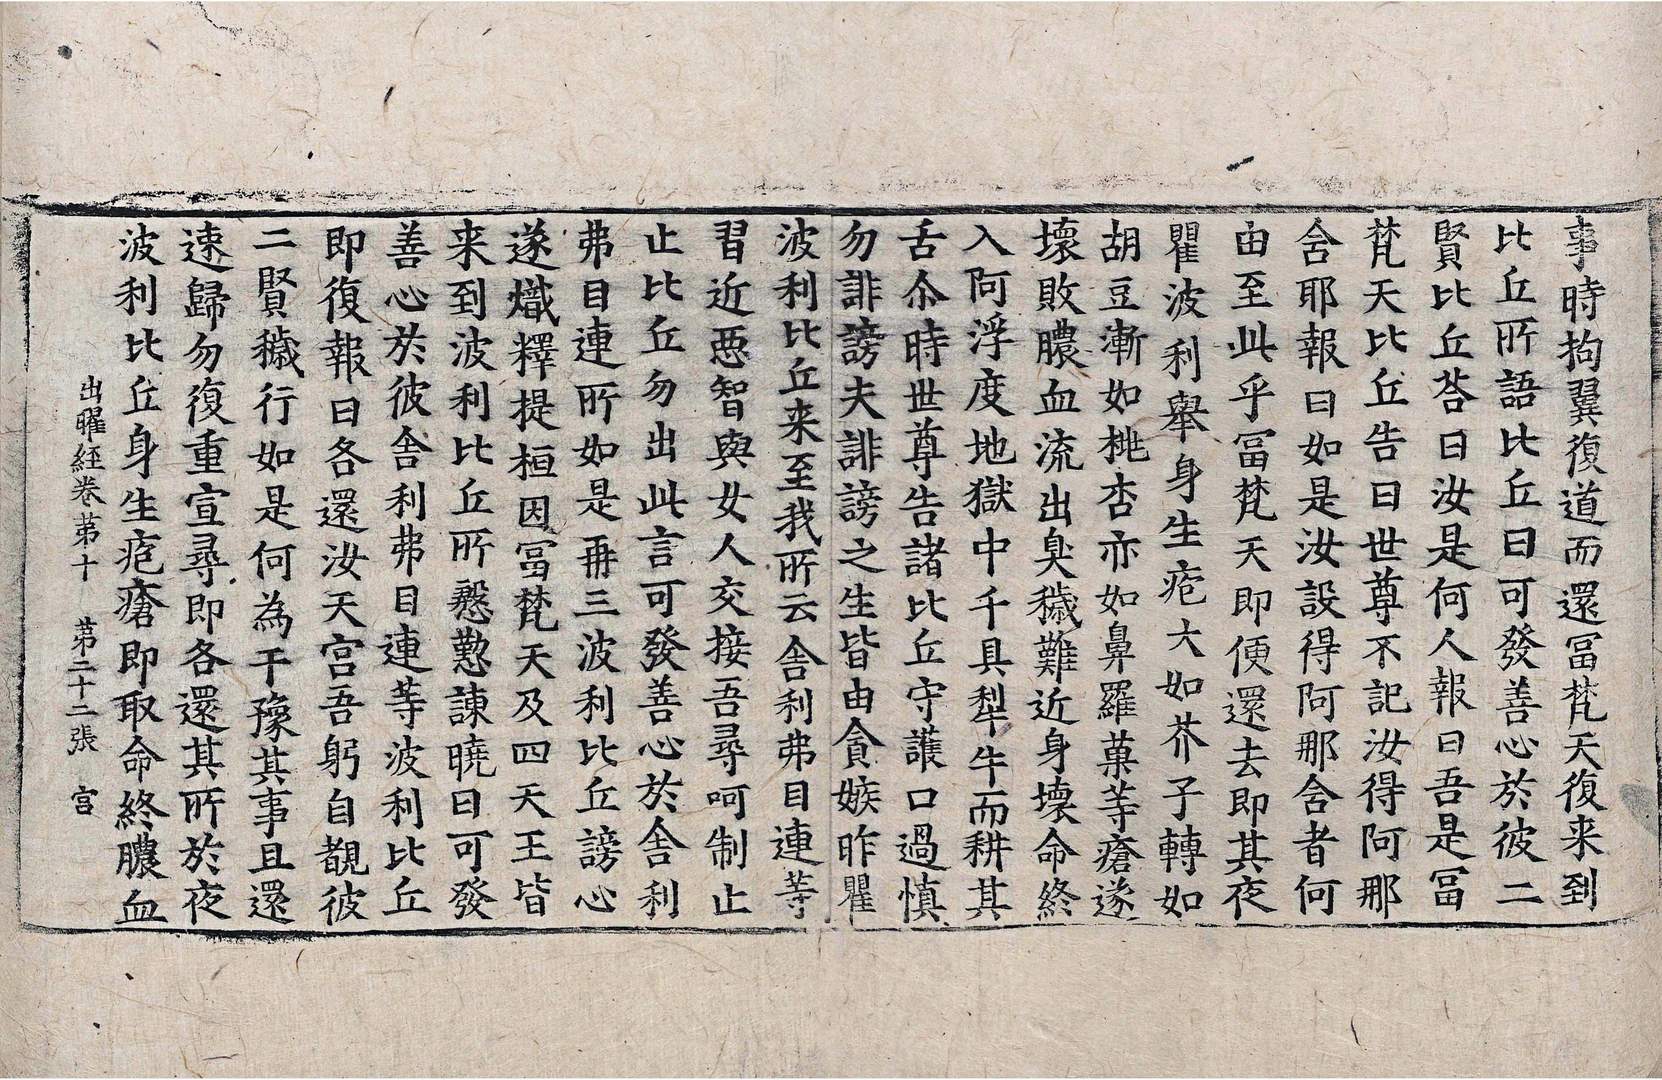 事時拘翼復道而還冨梵天復来到
比丘所語比丘曰可發善心於彼二
賢比丘荅曰汝是何人報曰吾是冨
梵天比丘告曰世尊不記汝得阿那
含耶報曰如是汝設得阿那含者何
由至此乎冨梵天即便還去即其夜
瞿波利舉身生疱大如芥子轉如
胡豆漸如桃杏亦如鼻羅菓等瘡遂
壞敗膿血流出臭穢難近身壞命終
入阿浮度地獄中千具犁牛而耕其
舌尒時世尊告諸比丘守護口過慎
勿誹謗夫誹謗之生皆由貪嫉昨瞿
波利比丘来至我所云舎利弗目連等
習近惡智與女人交接吾尋呵制止
止比丘勿出此言可發善心於舎利
弗目連所如是再三波利比丘謗心
遂熾釋提桓因冨梵天及四天王皆
来到波利比丘所慇懃諫曉曰可發
善心於彼舎利弗目連等波利比丘
即復報曰各還汝天宮吾躬自覩彼
二賢穢行如是何為干豫其事且還
速歸勿復重宣尋即各還其所於夜
波利比丘身生疱瘡即取命終膿血
出曜經卷苐十　苐二十二張　宮